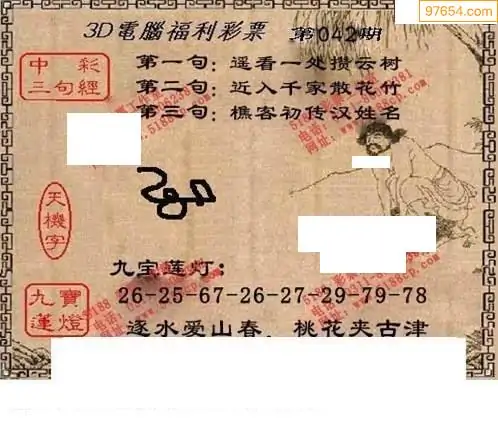 97654.com
3D電腦福利彩票 第042期
中彩
三句經
第一句：遥看一处攒云树
第二句：近入千家散花竹
第三句：樵客初传汉姓名
天機字
九宝莲灯：
九寶蓮燈
26-25-67-26-27-29-79-78
逐水爱山春，桃花夹古津